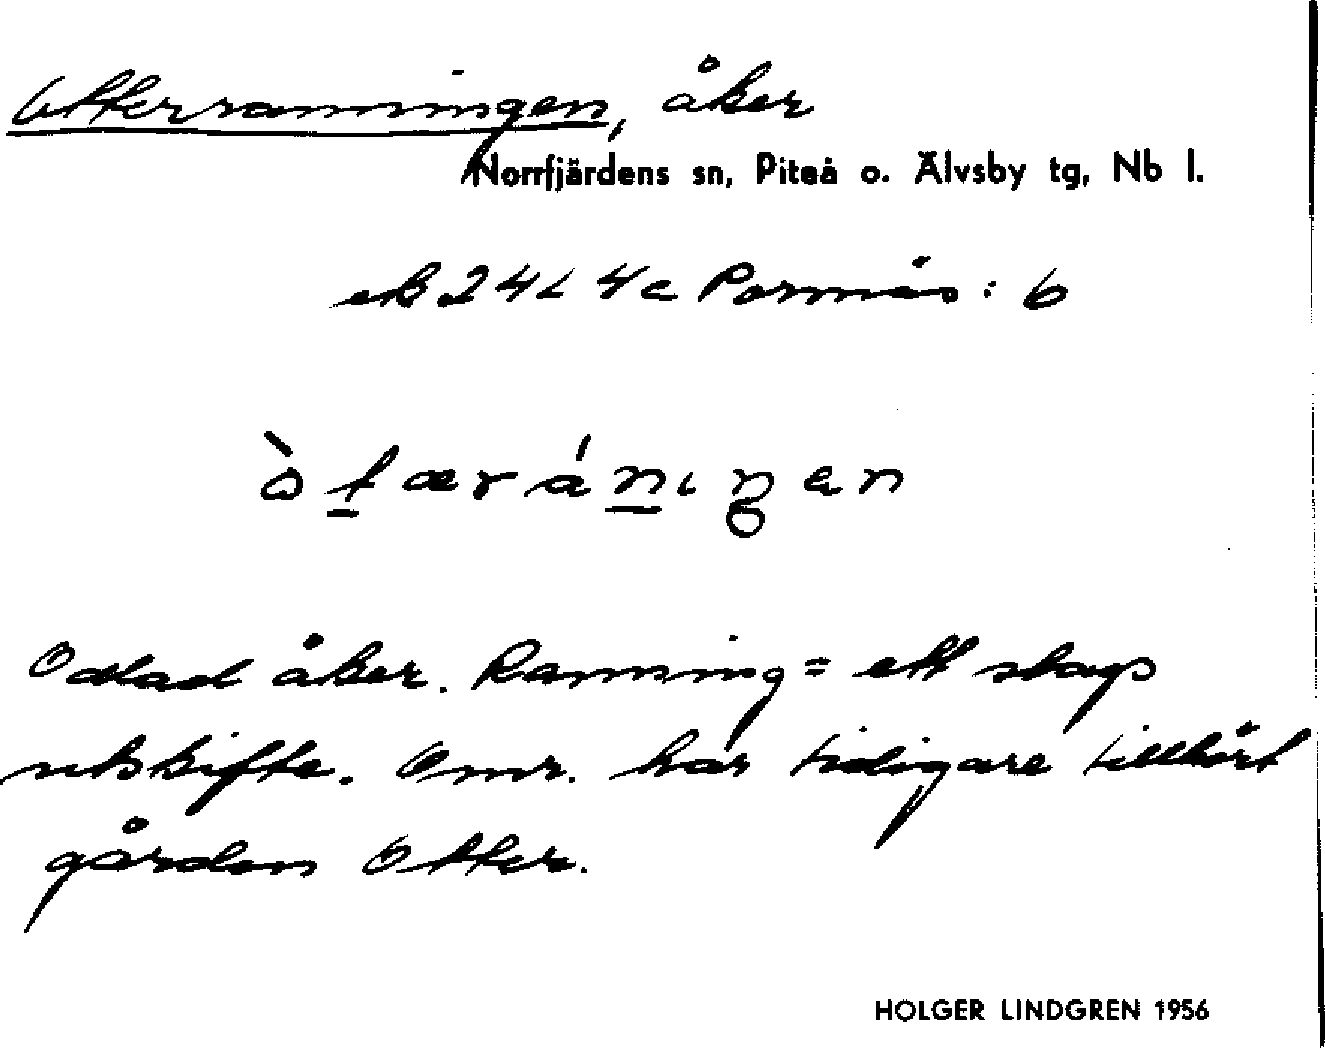 Otterranningen, åker
Norrfjärdens sn, Piteå o. Älvsby tg, Nb l.
ek 24L 4c Porsnäs: 6
òtærániŋen
Odlad åker. Ranning = ett slags
utskifte. Omr. har tidigare tillhört
gården Otter.
HOLGER LINDGREN 1956